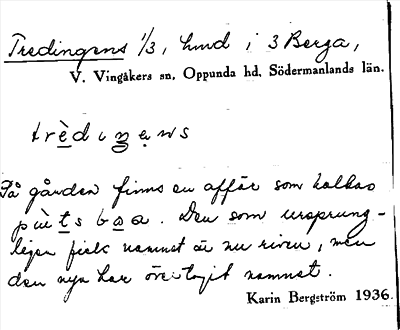 Tredingens 1/3, hmd i 3 Berga,
V. Vingåkers sn, Oppunda hd, Södermanlands län.
trèdıŋəns
På gården finns en affär som kallas
Den som ursprung-
ligen fick namnet är nu riven, men
den nya har övertagit namnet.
Karin Bergström 1936.